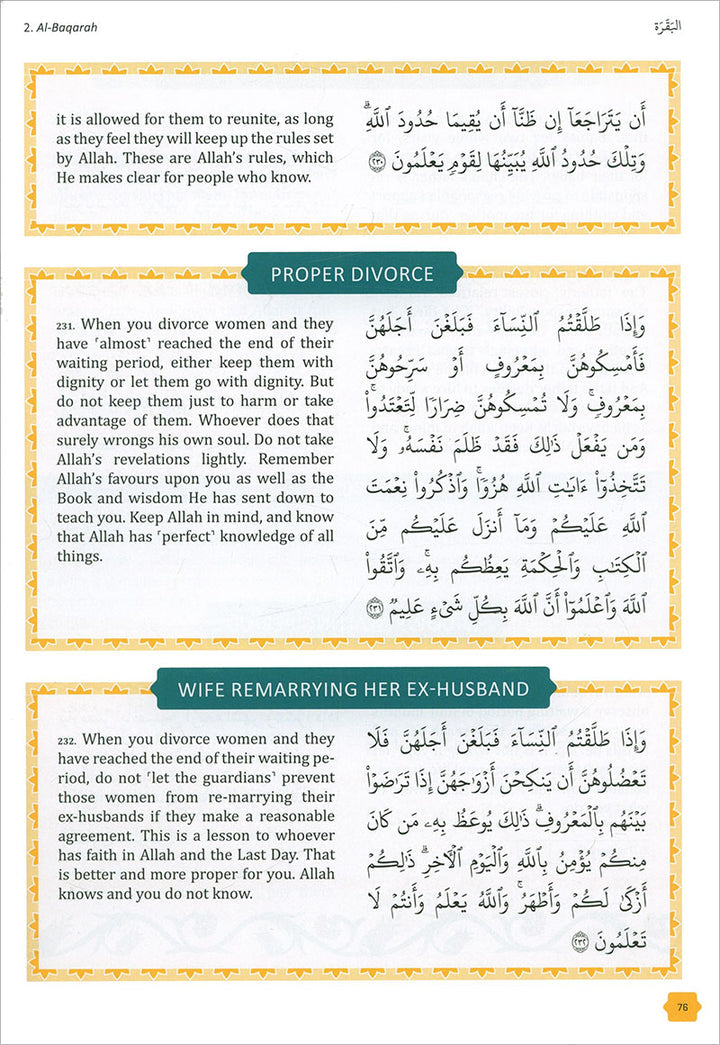 2. Al-Baqarah
البَقَرَة
it is allowed for them to reunite, as long
as they feel they will keep up the rules set
by Allah. These are Allah’s rules, which
He makes clear for people who know.
أَن يَتَرَاجَعَآ إِن ظَنَّآ أَن يُقِيمَا حُدُودَ ٱللَّهِۗ
وَتِلۡكَ حُدُودُ ٱللَّهِ يُبَيِّنُهَا لِقَوۡمٖ يَعۡلَمُونَ ٢٣٠
PROPER DIVORCE
231. When you divorce women and they
have ˹almost˺ reached the end of their
waiting period, either keep them with
dignity or let them go with dignity. But
do not keep them just to harm or take
advantage of them. Whoever does that
surely wrongs his own soul. Do not take
Allah’s revelations lightly. Remember
Allah’s favours upon you as well as the
Book and wisdom He has sent down to
teach you. Keep Allah in mind, and know
that Allah has ˹perfect˺ knowledge of all
things.
وَإِذَا طَلَّقۡتُمُ ٱلنِّسَآءَ فَبَلَغۡنَ أَجَلَهُنَّ
فَأَمۡسِكُوهُنَّ بِمَعۡرُوفٍ أَوۡ سَرِّحُوهُنَّ
بِمَعۡرُوفٖۚ وَلَا تُمۡسِكُوهُنَّ ضِرَارٗا لِّتَعۡتَدُواْۚ
وَمَن يَفۡعَلۡ ذَٰلِكَ فَقَدۡ ظَلَمَ نَفۡسَهُۥۚ وَلَا
تَتَّخِذُوٓاْ ءَايَٰتِ ٱللَّهِ هُزُوٗاۚ وَٱذۡكُرُواْ نِعۡمَتَ
ٱللَّهِ عَلَيۡكُمۡ وَمَآ أَنزَلَ عَلَيۡكُم مِّنَ
ٱلۡكِتَٰبِ وَٱلۡحِكۡمَةِ يَعِظُكُم بِهِۦۚ وَٱتَّقُواْ
ٱللَّهَ وَٱعۡلَمُوٓاْ أَنَّ ٱللَّهَ بِكُلِّ شَيۡءٍ عَلِيمٞ ٢٣١
WIFE REMARRYING HER EX-HUSBAND
232. When you divorce women and they
have reached the end of their waiting pe-
riod, do not ˹let the guardians˺ prevent
those women from re-marrying their
ex-husbands if they make a reasonable
agreement. This is a lesson to whoever
has faith in Allah and the Last Day. That
is better and more proper for you. Allah
knows and you do not know.
وَإِذَا طَلَّقۡتُمُ ٱلنِّسَآءَ فَبَلَغۡنَ أَجَلَهُنَّ فَلَا
تَعۡضُلُوهُنَّ أَن يَنكِحۡنَ أَزۡوَٰجَهُنَّ إِذَا تَرَٰضَوۡاْ
بَيۡنَهُم بِٱلۡمَعۡرُوفِۗ ذَٰلِكَ يُوعَظُ بِهِۦ مَن كَانَ
مِنكُمۡ يُؤۡمِنُ بِٱللَّهِ وَٱلۡيَوۡمِ ٱلۡأٓخِرِۗ ذَٰلِكُمۡ
أَزۡكَىٰ لَكُمۡ وَأَطۡهَرُۚ وَٱللَّهُ يَعۡلَمُ وَأَنتُمۡ لَا
تَعۡلَمُونَ ٢٣٢
76